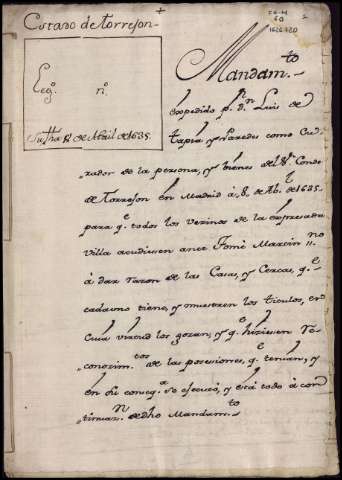 Estado de Torrejon
Leg.º n.º
Su fha 8 de Abril de 1635.
Mandam.to
expedido p.r D.n Luis de
tapia, y Paredes como Cu-
rador de la persona, y bienes del S.r Conde
de Torrejon en Madrid à 8 de Ab.l de 1635
para q.e todos los vecinos de la expresada
villa acudiesen ante Tomè Martin
à dar razon de las Casas, y Cercas, q.e
cada uno tiene, y muestren los titulos, en
cuia virtud los gozan, y q.e hiziesen re-
conozim.tos de las posesiones, q.e tenian, y
en su conseq.a se efecuto, y està todo à con-
tinuaz.n de dho Mandam.to